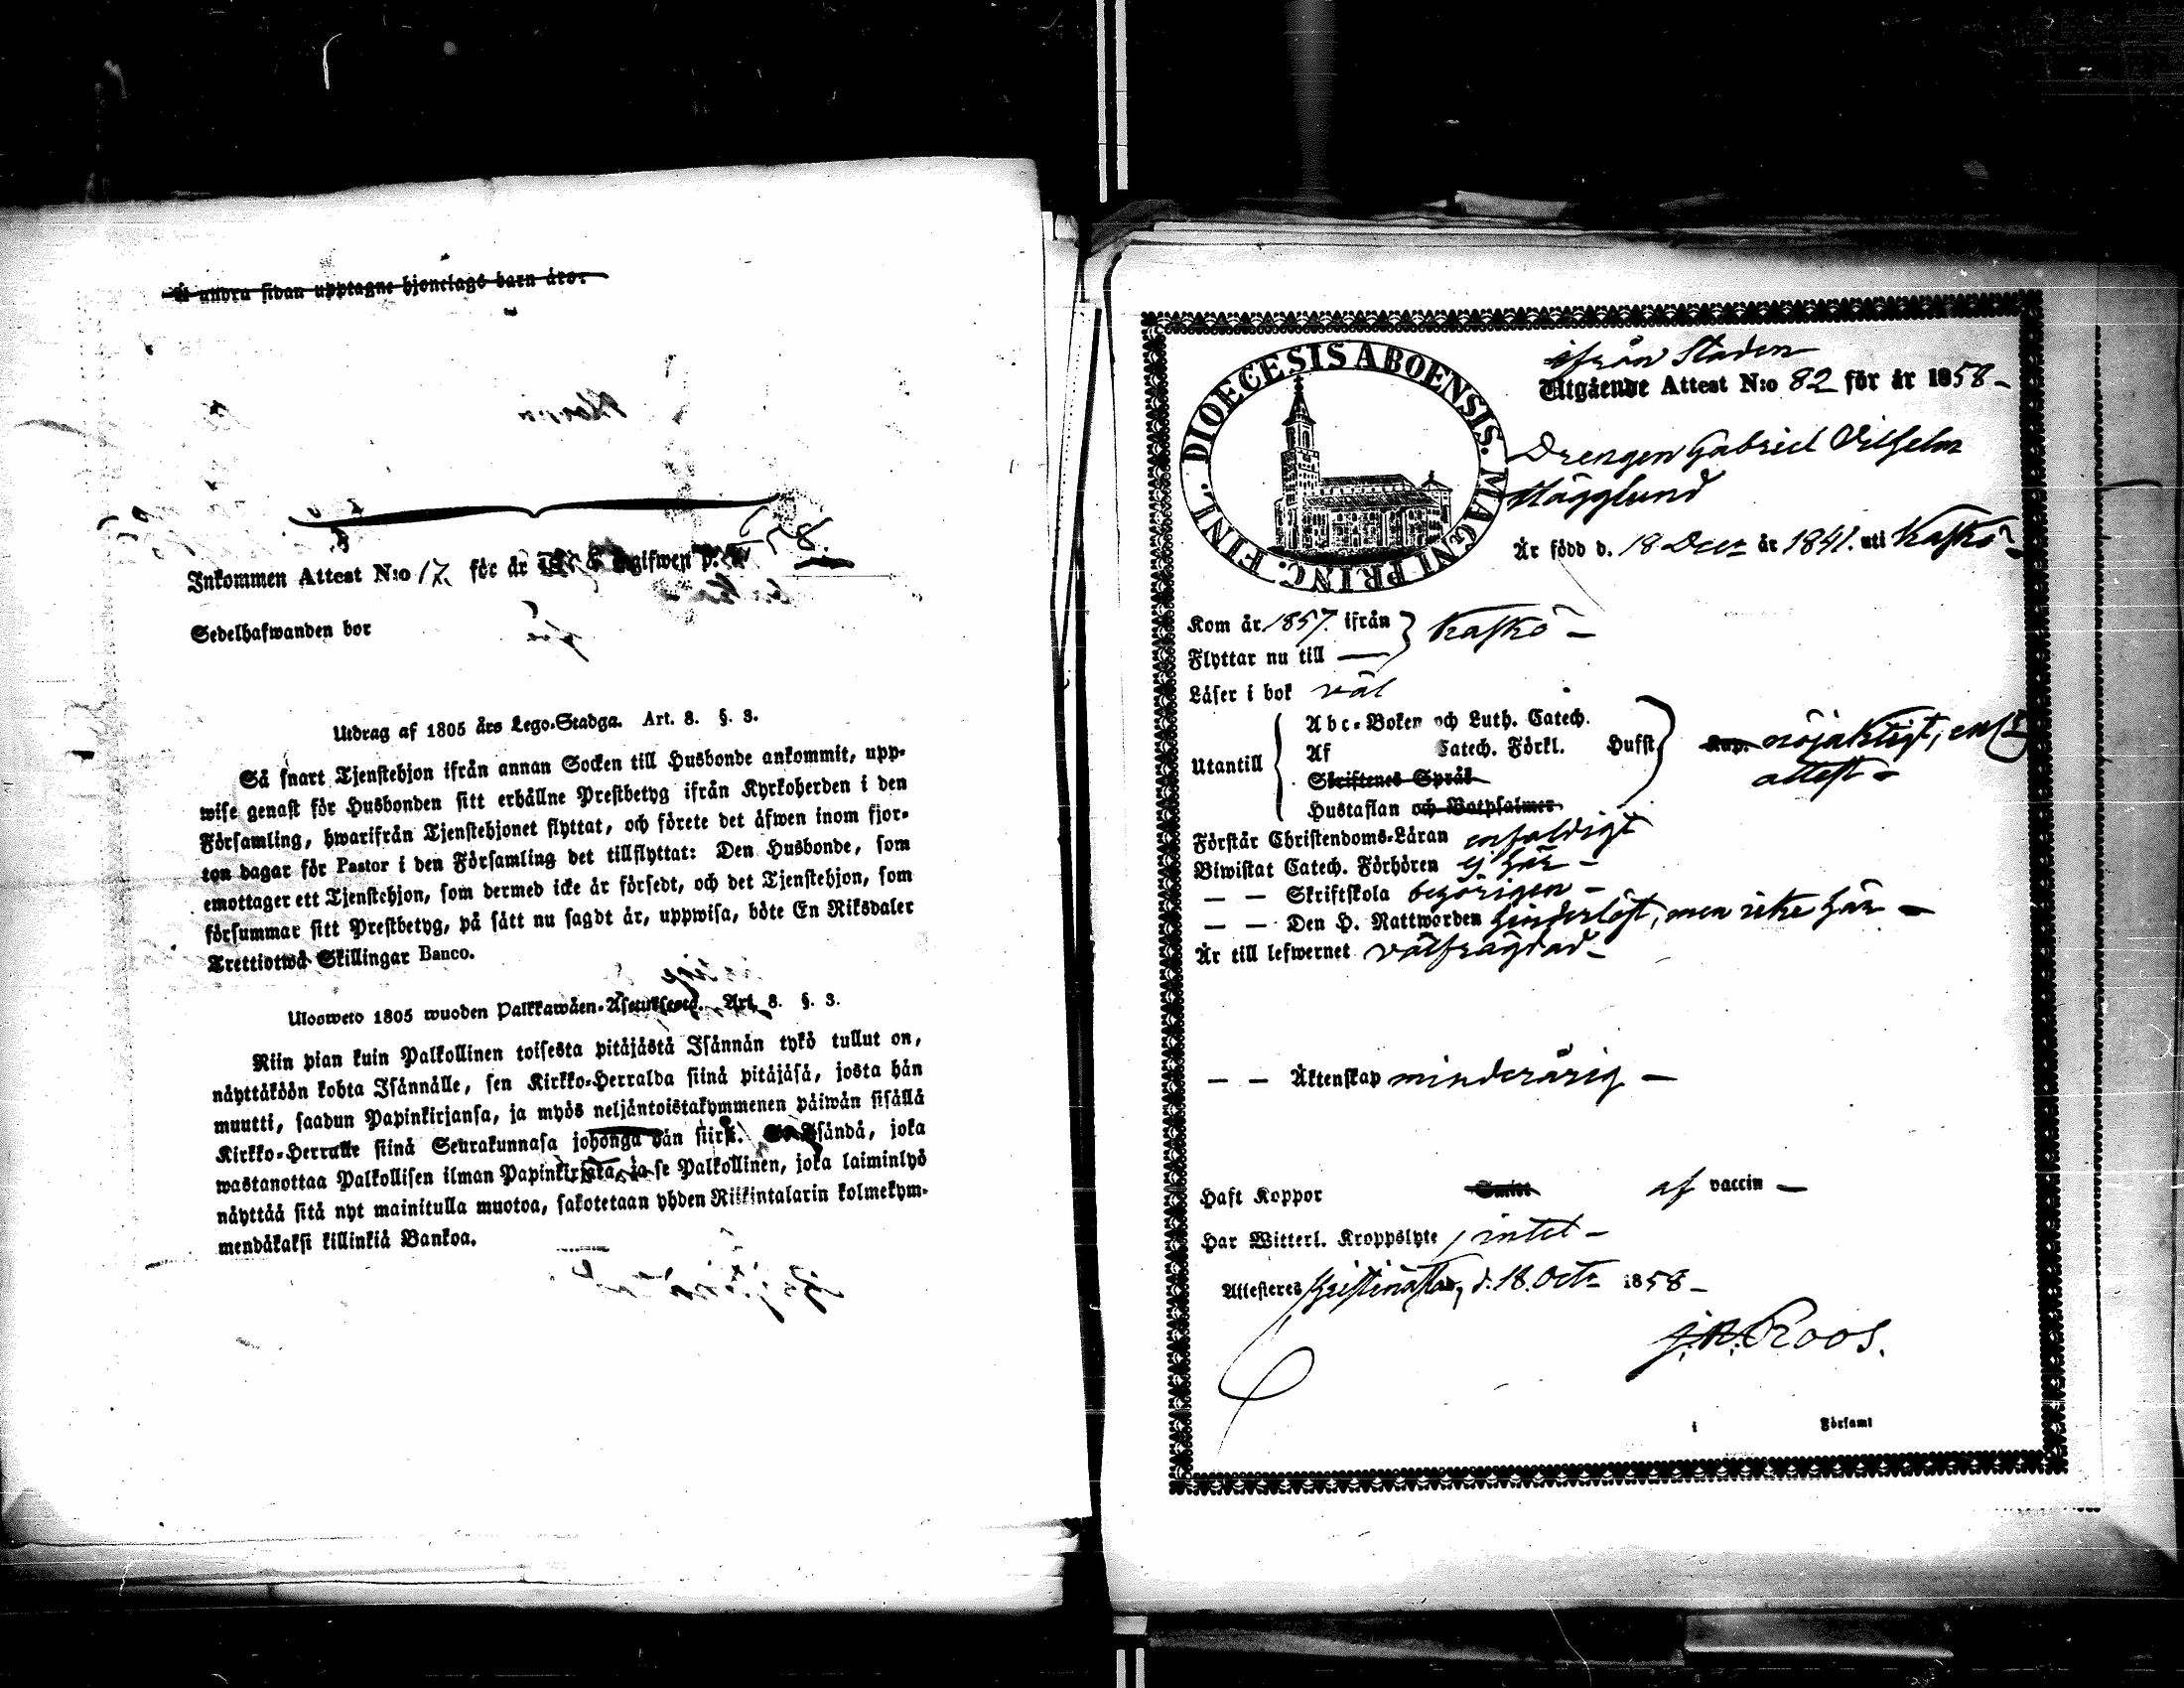 Å andra sidan upptagne hjonelags barn äro:
Inkommen Attest N:o 17 för år
Sedelhafwanden bor
Utdrag af 1805 års Lego-Stadga. Art. 8. §. 3.
Så snart Tjenstehjon ifrån annan Socken till Husbonde ankommit, upp-
wise genast för Husbonden sitt erhållne Prestbetyg ifrån Kyrkoherden i den
Församling, hwarifrån Tjenstehjonet flyttat, och förete det äfwen inom fjor-
ton dagar för Pastor i den Församling det tillflyttat: Den Husbonde, som
emottager ett Tjenstehjon, som dermed icke är försedt, och det Tjenstehjon, som
försummar sitt Prestbetyg, på sätt nu sagdt är, uppwisa, böte En Riksdaler
Trettiotwå Skillingar Banco.
Ulosweto 1805 wuoden Palkkawäen-Asetuksesta. Art. 8. §. 3.
Niin pian kuin Palkollinen toisesta pitäjästä Isännän tykö tullut on,
näyttäköön kohta Isännälle, sen Kirkko-Herralda siinä pitäjäsä, josta hän
muutti, saadun Papinkirjansa, ja myös neljäntoistakymmenen päiwän sisällä
Kirkko-Herralle siinä Seurakunnasa johonga hän siirsi. Se Isändä, joka
wastanottaa Palkollisen ilman Papinkirjata, ja se Palkollinen, joka laiminlyö
näyttää sitä nyt mainitulla muotoa, sakotetaan yhden Riikintalarin kolmekym-
mendäkaksi killinkiä Bankoa.
DIOECESIS ABOENSIS. MAGNI PRINC. FINL.
ifrån Staden
Utgående Attest N:o 82 för år 1858 -
Drengen Gabriel Vilhelm
Hägglund
Är född d. 18 Decr år 1841. uti Kaskö -
Kom år 1857. ifrån } Kaskö -
Flyttar nu till —
Läser i bok väl
Utantill { Abc-Boken och Luth. Catech.
Af Catech. Förkl. Hufst. } Kap. nöjaktigt, enl.
attest -
Skriftenes Språk
Hustaflan och Botpsalmer
Förstår Christendoms-Läran enfaldigt
Biwistat Catech. Förhören ej här -
— — Skriftskola behörigen -
— — Den H. Nattwarden hinderlöst, men icke här -
Är till lefwernet välfrägdad -
— — Äktenskap minderårig -
Haft Koppor af vaccin -
Har Witterl. Kroppslyte, intet -
Attesteres Kristinestad, d. 18. Octr 1858 -
J.R. Roos.
i Församl